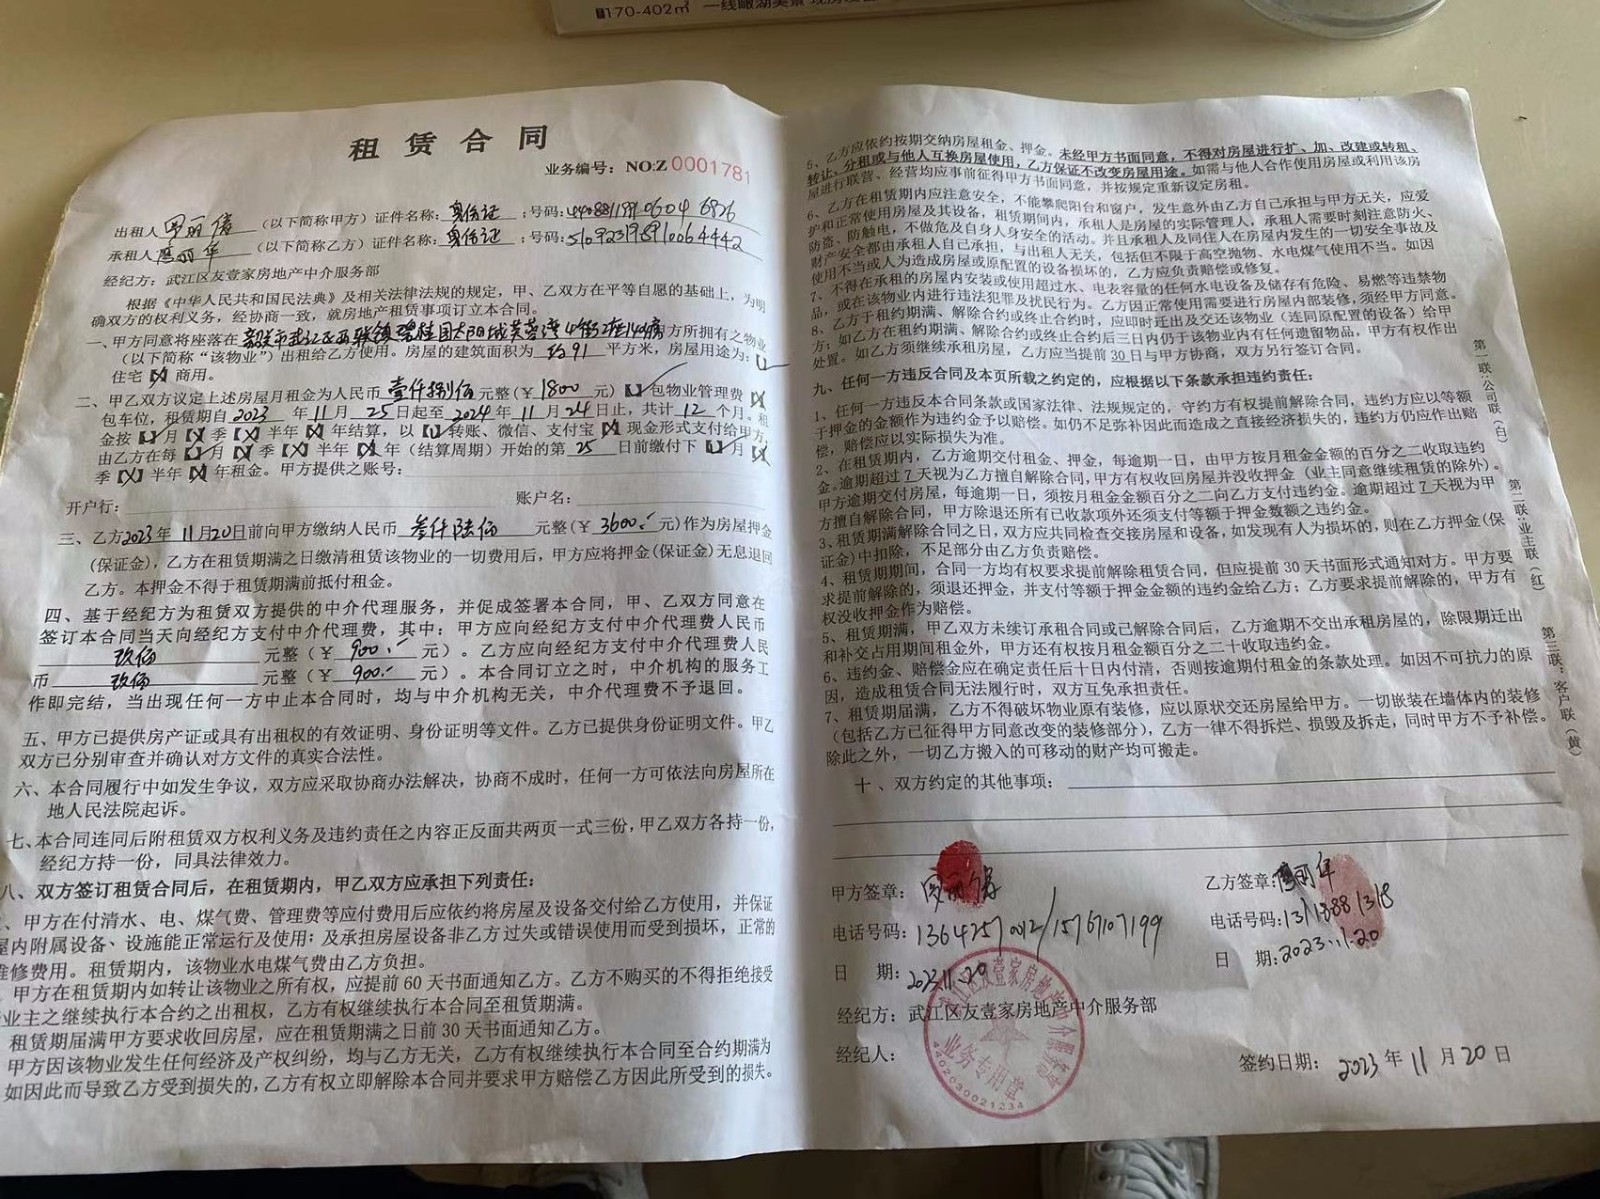 170-402㎡ 一线瞰湖美景
租赁合同
业务编号：NO:Z 0001781
出租人（以下简称甲方）证件名称：身份证；号码：
承租人（以下简称乙方）证件名称：身份证；号码：
经纪方：武江区友壹家房地产中介服务部
根据《中华人民共和国民法典》及相关法律法规的规定，甲、乙双方在平等自愿的基础上，为明
确双方的权利义务，经协商一致，就房地产租赁事项订立本合同。
一、甲方同意将座落在韶关市武江区西联镇碧桂园太阳城芙蓉湾4街2座 方所拥有之物业
（以下简称“该物业”）出租给乙方使用。房屋的建筑面积为 约91 平方米，房屋用途为：【✓】
住宅【X】商用。
二、甲乙双方议定上述房屋月租金为人民币 壹仟捌佰 元整（￥1800 元）【✓】包物业管理费【X】
包车位，租赁期自 2023 年 11 月 25 日起至 2024 年 11 月 24 日止，共计 12 个月。租
金按【✓】月【X】季【X】半年【X】年结算，以【✓】转账、微信、支付宝【X】现金形式支付给甲方，
由乙方在每【✓】月【X】季【X】半年【X】年（结算周期）开始的第 25 日前缴付下【✓】月【X】
季【X】半年【X】年租金。甲方提供之账号：
开户行： 账户名：
三、乙方2023年11月20日前向甲方缴纳人民币 叁仟陆佰 元整（￥3600.- 元）作为房屋押金
（保证金），乙方在租赁期满之日缴清租赁该物业的一切费用后，甲方应将押金（保证金）无息退回
乙方。本押金不得于租赁期满前抵付租金。
四、基于经纪方为租赁双方提供的中介代理服务，并促成签署本合同，甲、乙双方同意在
签订本合同当天向经纪方支付中介代理费，其中：甲方应向经纪方支付中介代理费人民币
玖佰 元整（￥ 900.- 元）。乙方应向经纪方支付中介代理费人民
币 玖佰 元整（￥ 900.- 元）。本合同订立之时，中介机构的服务工
作即完结，当出现任何一方中止本合同时，均与中介机构无关，中介代理费不予退回。
五、甲方已提供房产证或具有出租权的有效证明、身份证明等文件。乙方已提供身份证明文件。甲乙
双方已分别审查并确认对方文件的真实合法性。
六、本合同履行中如发生争议，双方应采取协商办法解决，协商不成时，任何一方可依法向房屋所在
地人民法院起诉。
七、本合同连同后附租赁双方权利义务及违约责任之内容正反面共两页一式三份，甲乙双方各持一份，
经纪方持一份，同具法律效力。
八、双方签订租赁合同后，在租赁期内，甲乙双方应承担下列责任：
、甲方在付清水、电、煤气费、管理费等应付费用后应依约将房屋及设备交付给乙方使用，并保证
屋内附属设备、设施能正常运行及使用；及承担房屋设备非乙方过失或错误使用而受到损坏，正常的
维修费用。租赁期内，该物业水电煤气费由乙方负担。
甲方在租赁期内如转让该物业之所有权，应提前60天书面通知乙方。乙方不购买的不得拒绝接受
业主之继续执行本合约之出租权，乙方有权继续执行本合同至租赁期满。
租赁期届满甲方要求收回房屋，应在租赁期满之日前30天书面通知乙方。
甲方因该物业发生任何经济及产权纠纷，均与乙方无关，乙方有权继续执行本合同至合约期满为
如因此而导致乙方受到损失的，乙方有权立即解除本合同并要求甲方赔偿乙方因此所受到的损失。
5、乙方应依约按期交纳房屋租金、押金。未经甲方书面同意，不得对房屋进行扩、加、改建或转租、
转让、分租或与他人互换房屋使用，乙方保证不改变房屋用途。如需与他人合作使用房屋或利用该房
屋进行联营、经营均应事前征得甲方书面同意，并按规定重新议定房租。
6、乙方在租赁期内应注意安全，不能攀爬阳台和窗户，发生意外由乙方自己承担与甲方无关，应爱
护和正常使用房屋及其设备，租赁期间内，承租人是房屋的实际管理人，承租人需要时刻注意防火、
防盗、防触电，不做危及自身人身安全的活动。并且承租人及同住人在房屋内发生的一切安全事故及
财产安全都由承租人自己承担，与出租人无关，包括但不限于高空抛物、水电煤气使用不当。如因
使用不当或人为造成房屋或原配置的设备损坏的，乙方应负责赔偿或修复。
7、不得在承租的房屋内安装或使用超过水、电表容量的任何水电设备及储存有危险、易燃等违禁物
品，或在该物业内进行违法犯罪及扰民行为。乙方因正常使用需要进行房屋内部装修，须经甲方同意。
8、乙方于租约期满、解除合约或终止合约时，应即时迁出及交还该物业（连同原配置的设备）给甲
方；如乙方在租约期满、解除合约或终止合约后三日内仍于该物业内有任何遗留物品，甲方有权作出
处置。如乙方须继续承租房屋，乙方应当提前30日与甲方协商，双方另行签订合同。
九、任何一方违反合同及本页所载之约定的，应根据以下条款承担违约责任：
1、任何一方违反本合同条款或国家法律、法规规定的，守约方有权提前解除合同，违约方应以等额
于押金的金额作为违约金予以赔偿。如仍不足弥补因此而造成之直接经济损失的，违约方仍应作出赔
偿，赔偿应以实际损失为准。
2、在租赁期内，乙方逾期交付租金、押金，每逾期一日，由甲方按月租金金额的百分之二收取违约
金。逾期超过7天视为乙方擅自解除合同，甲方有权收回房屋并没收押金（业主同意继续租赁的除外）。
甲方逾期交付房屋，每逾期一日，须按月租金金额百分之二向乙方支付违约金。逾期超过7天视为甲
方擅自解除合同，甲方除退还所有已收款项外还须支付等额于押金数额之违约金。
3、租赁期满解除合同之日，双方应共同检查交接房屋和设备，如发现有人为损坏的，则在乙方押金（保
证金）中扣除，不足部分由乙方负责赔偿。
4、租赁期期间，合同一方均有权要求提前解除租赁合同，但应提前30天书面形式通知对方。甲方要
求提前解除的，须退还押金，并支付等额于押金金额的违约金给乙方；乙方要求提前解除的，甲方有
权没收押金作为赔偿。
5、租赁期满，甲乙双方未续订承租合同或已解除合同后，乙方逾期不交出承租房屋的，除限期迁出
和补交占用期间租金外，甲方还有权按月租金额百分之二十收取违约金。
6、违约金、赔偿金应在确定责任后十日内付清，否则按逾期付租金的条款处理。如因不可抗力的原
因，造成租赁合同无法履行时，双方互免承担责任。
7、租赁期届满，乙方不得破坏物业原有装修，应以原状交还房屋给甲方。一切嵌装在墙体内的装修
（包括乙方已征得甲方同意改变的装修部分），乙方一律不得拆烂、损毁及拆走，同时甲方不予补偿。
除此之外，一切乙方搬入的可移动的财产均可搬走。
十、双方约定的其他事项：
甲方签章： 乙方签章：
电话号码：13642570012/15767107199 电话号码：13118881318
日 期：2023.11.20 日 期：2023.11.20
经纪方：武江区友壹家房地产中介服务部
经纪人： 签约日期：2023年11月20日
武江区友壹家房地产中介服务部
业务专用章
4402030021334
第一联：公司联（白）
第二联：业主联（红）
第三联：客户联（黄）